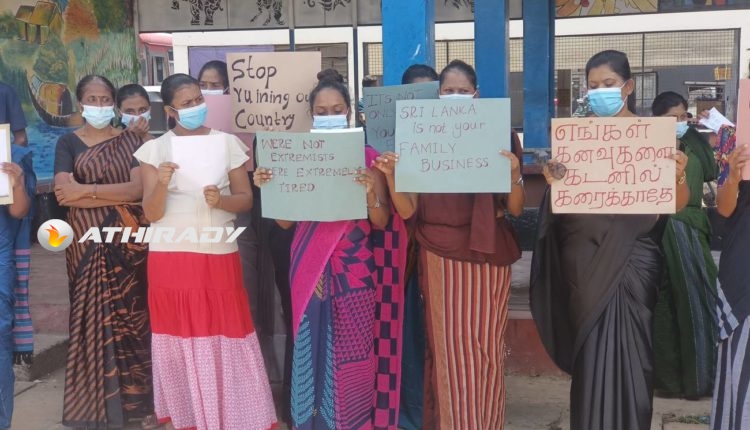 Stop
Ruining our
Country
WERE NOT
EXTREMISTS
WERE EXTREMELY
TIRED
ITS NOT
ONLY
SRI LANKA
is not your
FAMILY
BUSINESS
எங்கள்
கனவுகளை
கடனில்
கரைக்காதே
ATHIRADY